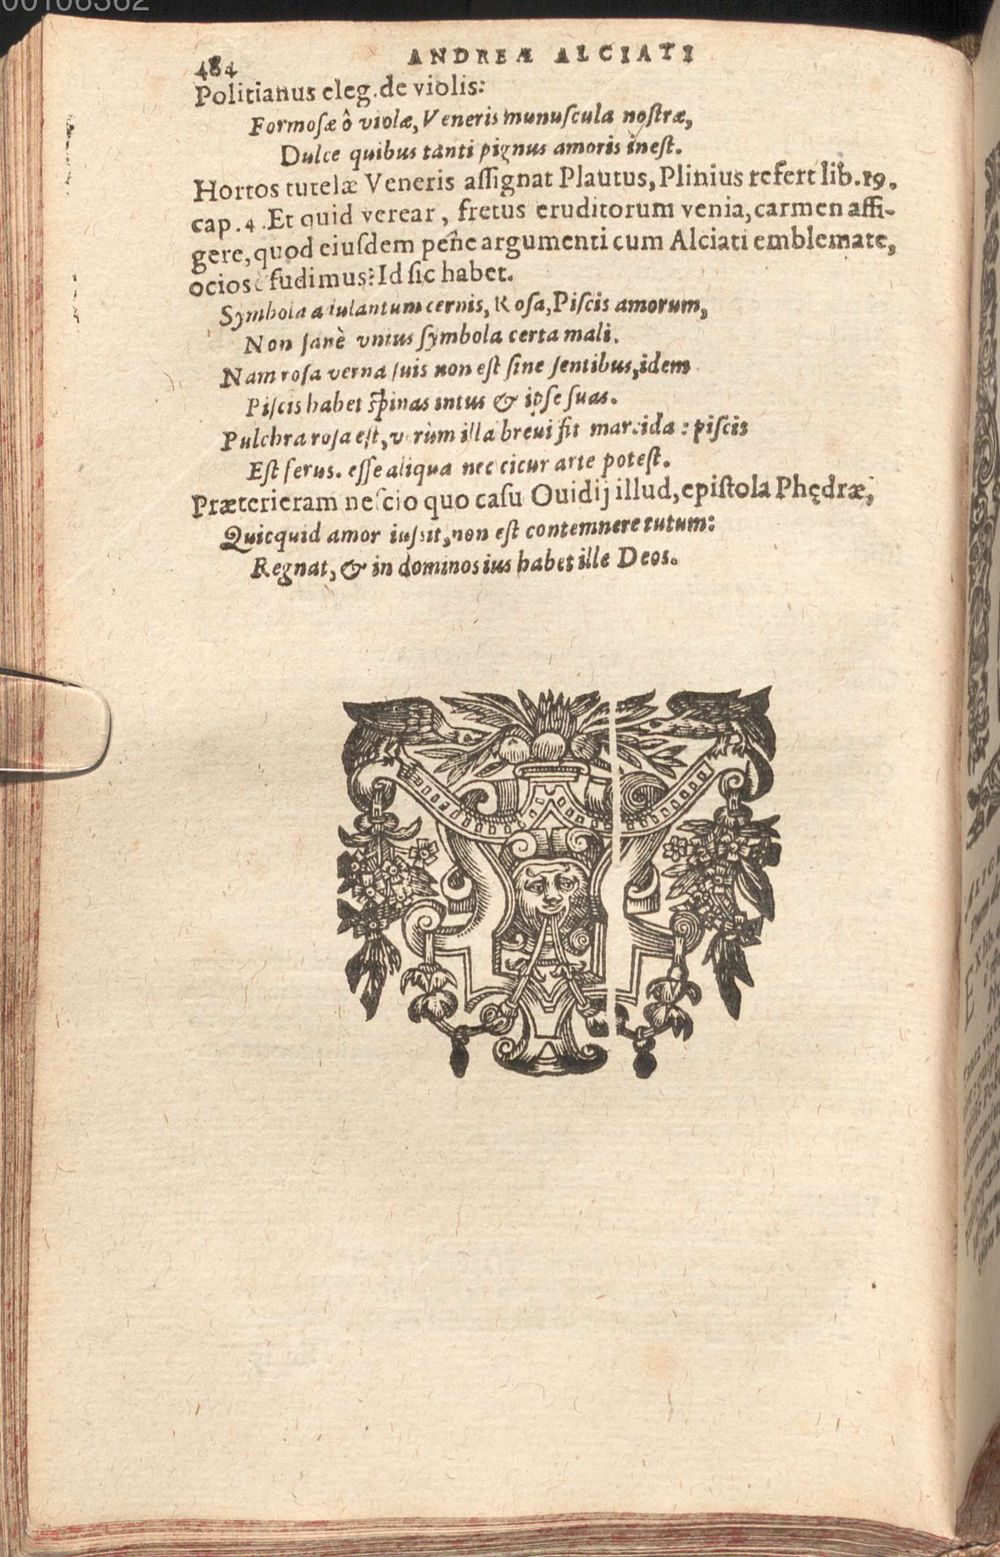 00106362
484
ANDREÆ ALCIATI
Politianus eleg. de violis:
Formoſæ ô violæ, Veneris munuſcula noſtræ,
Dulce quibus tanti pignus amoris ineſt.
Hortos tutelæ Veneris aſſignat Plautus, Plinius refert lib. 19.
cap. 4. Et quid verear, fretus eruditorum venia, carmen affi-
gere, quod eiuſdem penè argumenti cum Alciati emblemate,
ociosè fudimus? Id ſic habet.
Symbola adulantum cernis, Roſa, Piſcis amorum,
Non ſanè vnius ſymbola certa mali.
Nam roſa verna ſuis non eſt ſine ſentibus, idem
Piſcis habet ſpinas intus & ipſe ſuas.
Pulchra roſa eſt, verùm illa breui fit marcida: piſcis
Eſt ferus. eſſe aliqua nec cicur arte poteſt.
Præterieram neſcio quo caſu Ouidij illud, epiſtola Phędræ,
Quicquid amor iuſſit, non eſt contemnere tutum:
Regnat, & in dominos ius habet ille Deos.